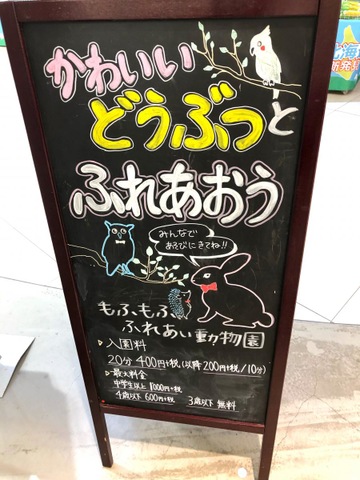 かわいい
どうぶつと
ふれあおう
みんなで
あそびにきてね!!
もふもふ
ふれあい動物園
入園料
20分 400円+税(以降200円+税/10分)
最大料金
中学生以上 1000円+税
4歳以下 600円+税 3歳以下 無料